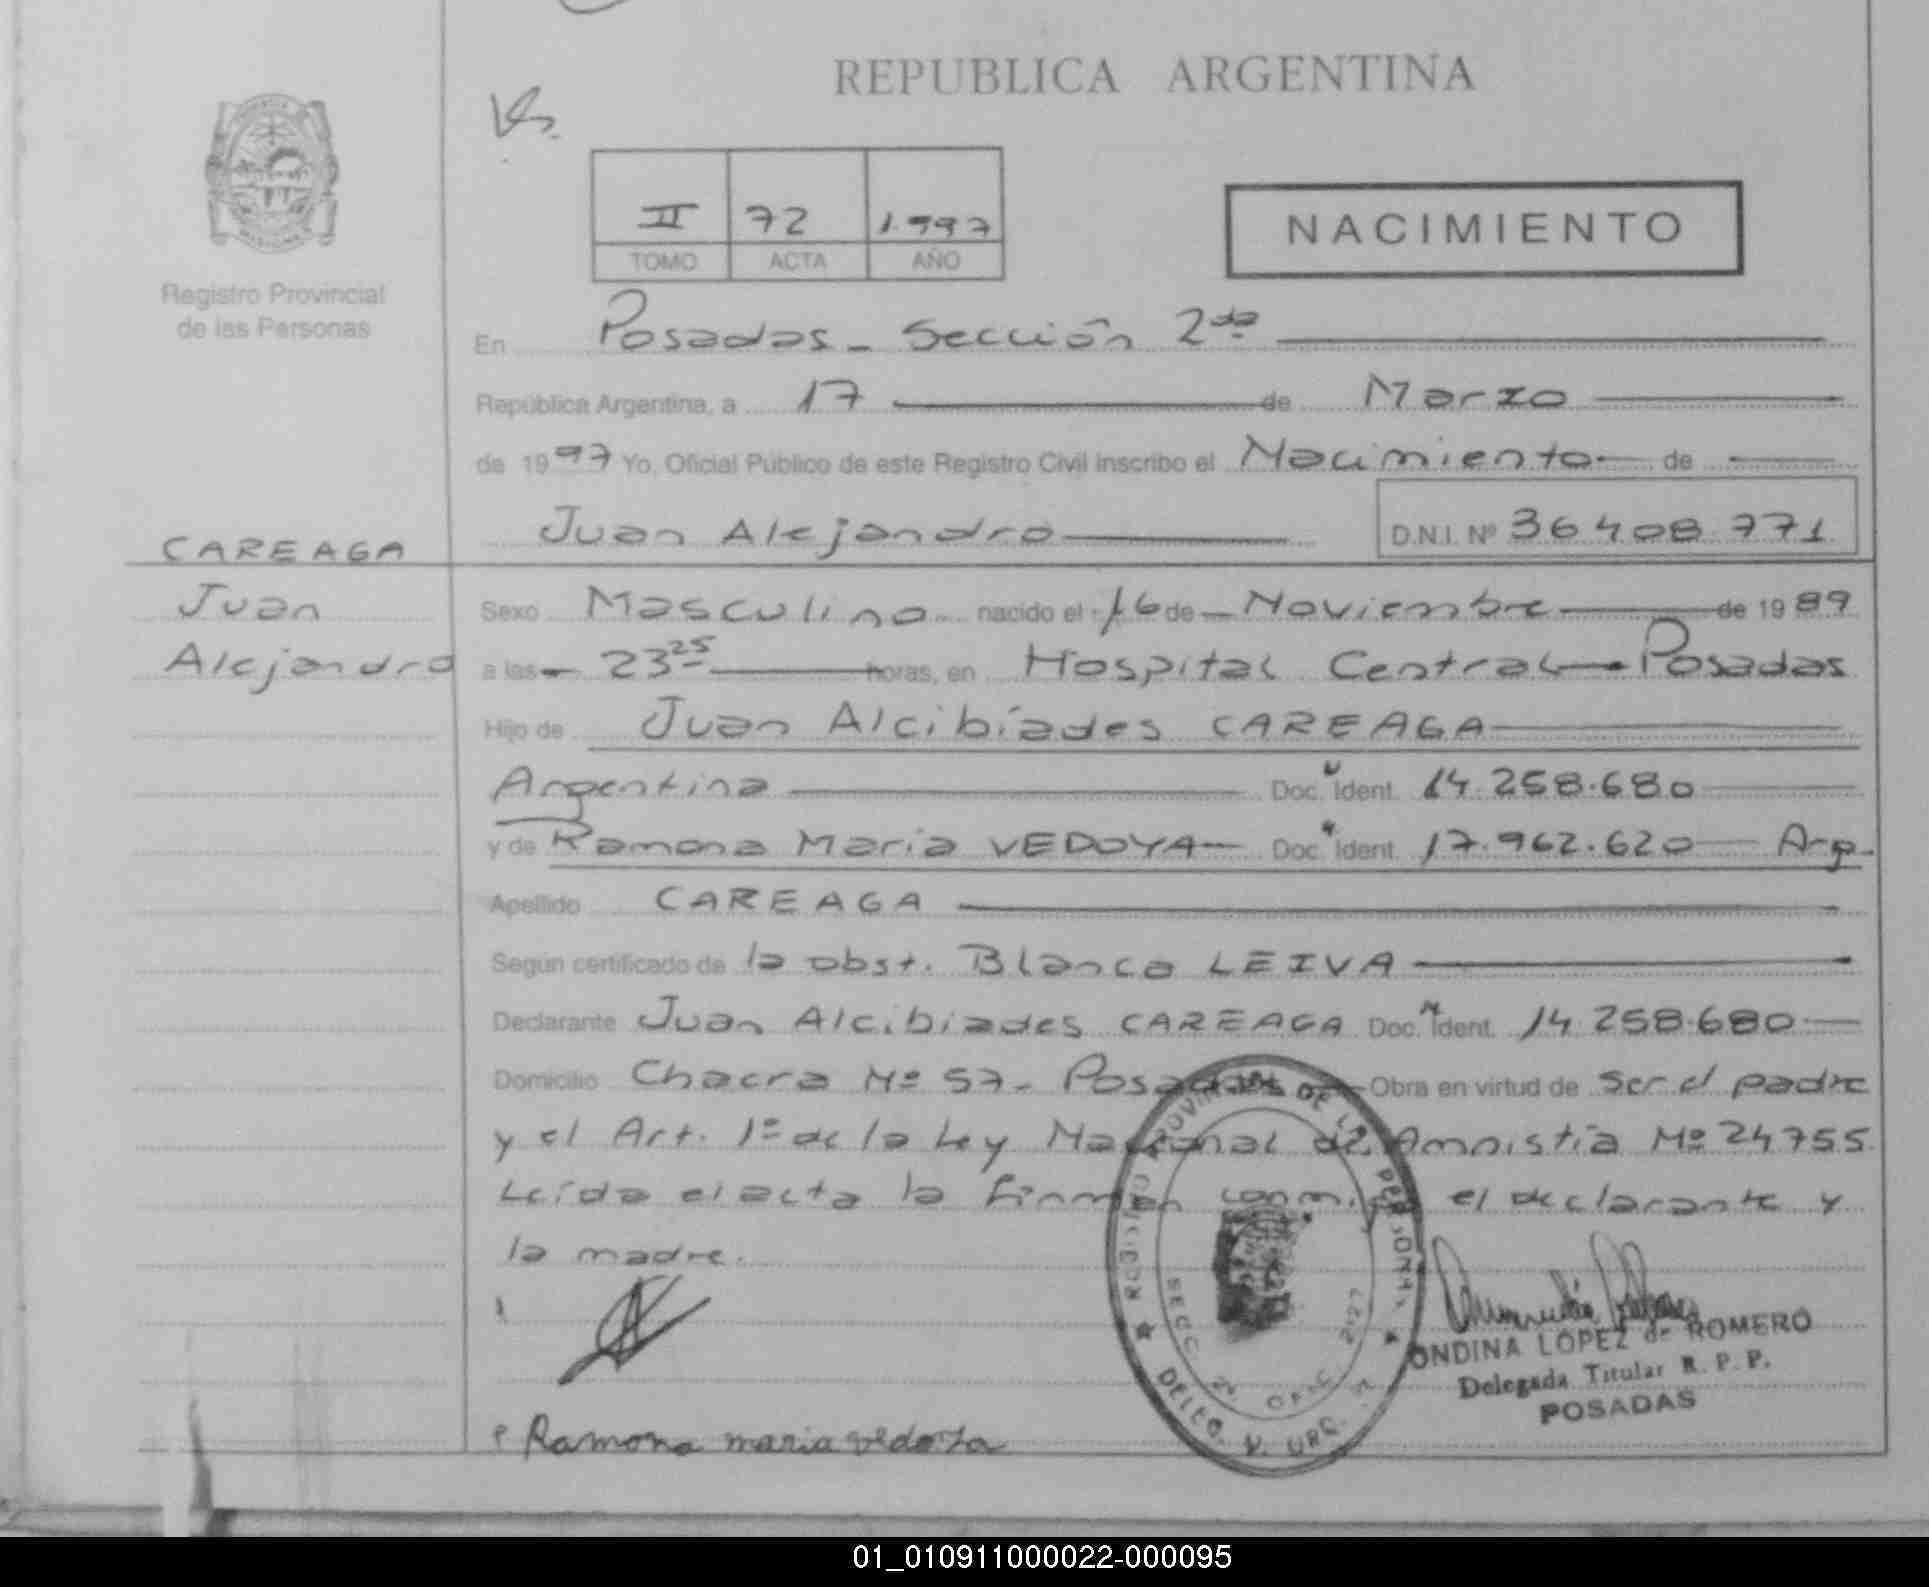 REPUBLICA ARGENTINA
II 72 1.997
TOMO ACTA AÑO
NACIMIENTO
Registro Provincial
de las Personas
En Posadas - Sección 2da
República Argentina, a 17 de Marzo
de 1997 Yo, Oficial Público de este Registro Civil inscribo el Nacimiento de
Juan Alejandro D.N.I. Nº 36.408.771
CAREAGA
Juan
Alejandro
Sexo Masculino nacido el 16 de Noviembre de 1989
a las 23 25 horas, en Hospital Central - Posadas
Hijo de Juan Alcibíades CAREAGA
Argentina Doc. Ident. 14.258.680
y de Ramona María VEDOYA Doc. Ident. 17.962.620 Arg.
Apellido CAREAGA
Según certificado de la obst. Blanca LEIVA
Declarante Juan Alcibiades CAREAGA Doc. Ident. 14.258.680
Domicilio Chacra Nº 57 - Posadas Obra en virtud de ser el padre
y el Art. 1º de la Ley Nacional de Amnistía Nº 24755.
Leída el acta la firman conmigo el declarante y
la madre.
REGISTRO PROVINCIAL DE LAS PERSONAS
SECC. 2ª OFIC.
ONDINA LÓPEZ de ROMERO
Delegada Titular R. P. P.
POSADAS
Ramona maria vedoya
01_010911000022-000095